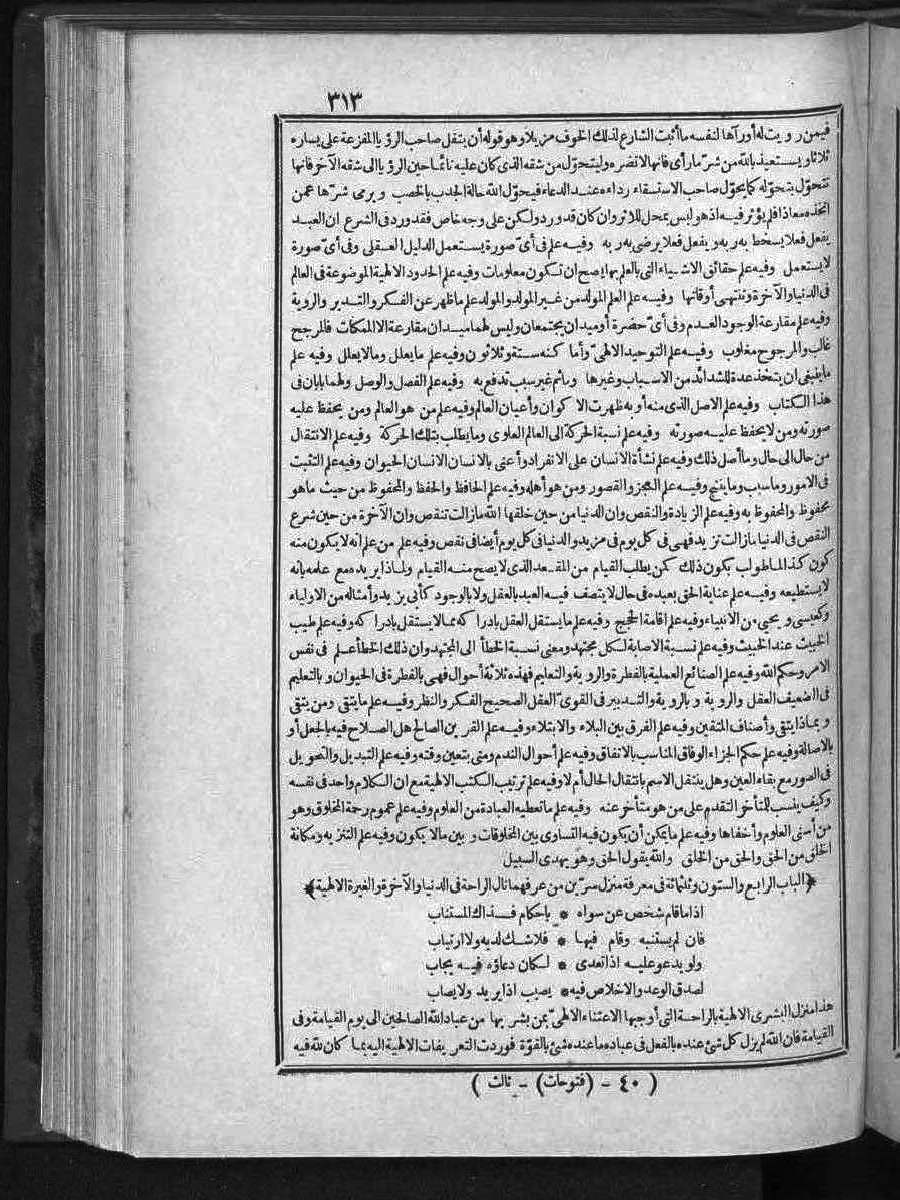 ٣١٣
فيمن رويت له أو رآها لنفسه ما أثبت الشارع لذلك الخوف مزيلا وهو قوله أن يتفل صاحب الرؤيا المفزعة على يساره
ثلاثا ويستعيذ بالله من شر ما رأى فانها لا تضره وليتحوّل من شقه الذى كان عليه نائما حين الرؤيا الى شقه الآخر فانها
تتحوّل بتحوّله كما يحوّل صاحب الاستسقاء رداءه عند الدعاء فيحوّل الله حالة الجدب بالخصب ويرمى شرّها عمن
اتخذه معاذا فلم يؤثر فيه اذ هو ليس بمحل للاثر وان كان قد ورد ولكن على وجه خاص فقد ورد فى الشرع ان العبد
يفعل فعلا يسخط به ربه ويفعل فعلا يرضى به ربه وفيه علم فى أىّ صورة يستعمل الدليل العقلى وفى أىّ صورة
لا يستعمل وفيه علم حقائق الاشياء التى بالعلم بها يصح ان تكون معلومات وفيه علم الحدود الالهية الموضوعة فى العالم
فى الدنيا والآخرة وتنتهى أوقاتها وفيه علم العلم المولد من غير المولد والمولد علم ما ظهر عن الفكر والتدبر والروية
وفيه علم مقارعة الوجود العدم وفى أىّ حضرة أو ميدان يجتمعان وليس لهما ميدان مقارعة الا الممكنات فالمرجح
غالب والمرجوح مغلوب وفيه علم التوحيد الالهىّ وأما كنه ستة وثلاثون وفيه علم ما يعلل وما لا يعلل وفيه علم
ما ينبغى ان يتخذ عدة للشدائد من الاسباب وغيرها وما ثم غير سبب تدفع به وفيه علم الفصل والوصل ولهما بابان فى
هذا الكتاب وفيه علم الاصل الذى منه أو به ظهرت الاكوان وأعيان العالم وفيه علم من هو العالم ومن يحفظ عليه
صورته ومن لا يحفظ عليه صورته وفيه علم نسبة الحركة الى العالم العلوى وما يطلب بتلك الحركة وفيه علم الانتقال
من حال الى حال وما أصل ذلك وفيه علم نشأة الانسان على الانفراد وأعنى بالانسان الانسان الحيوان وفيه علم التثبت
فى الامور وما سبب وما ينتج وفيه علم العجز والقصور ومن هو أهله وفيه علم الحافظ والحفظ والمحفوظ من حيث ما هو
محفوظ والمحفوظ به وفيه علم الزيادة والنقص وان الدنيا من حين خلقها الله ما زالت تنقص وان الآخرة من حين شرع
النقص فى الدنيا ما زالت تزيد فهى فى كل يوم فى مزيد والدنيا فى كل يوم أيضا فى نقص وفيه علم من علم انه لا يكون منه
كون كذا لماطولب بكون ذلك كمن يطلب القيام من المقعد الذى لا يصح منه القيام ولماذا يريده مع علمه بانه
لا يستطيعه وفيه علم عناية الحق بعبده فى حال لا يتصف فيه العبد بالعقل ولا بالوجود كأبى يزيد وأمثاله من الاولياء
وكعيسى ويحيى من الانبياء وفيه علم اقامة الحجج وفيه علم ما يستقل العقل بادراكه مما لا يستقل بادراكه وفيه علم طيب
الخبيث عند الخبيث وفيه علم نسبة الاصابة لكل مجتهد ومعنى نسبة الخطأ الى المجتهد وان ذلك الخطأ علم فى نفس
الامر وحكم الله وفيه علم الصنائع العملية بالفطرة والروية والتعليم فهذه ثلاثة أحوال فهى بالفطرة فى الحيوان وبالتعليم
فى الضعيف العقل والروية وبالروية والتدبير فى القوىّ العقل الصحيح الفكر والنظر وفيه علم ما يتقى ومن يتقى
وبماذا يتقى وأصناف المتقين وفيه علم الفرق بين البلاء والابتلاء وفيه علم القرين الصالح هل الصلاح فيه بالجعل أو
بالاصالة وفيه علم حكم الجزاء الوفاق المناسب بالاتفاق وفيه علم أحوال الندم ومتى يتعين وقته وفيه علم التبديل والتحويل
فى الصور مع بقاء العين وهل ينتقل الاسم بانتقال الحال أم لا وفيه علم ترتيب الكتب الالهية مع ان الكلام واحد فى نفسه
وكيف ينسب للتأخر التقدم على من هو متأخر عنه وفيه علم ما تعطيه العبادة من العلوم وفيه علم عموم رحة المخلوق وهو
من أسنى العلوم وأخفاها وفيه علم ما يمكن أن يكون فيه التساوى بين المخلوقات وبين ما لا يكون وفيه علم التنزيه ومكانة
الخلق من الحق والحق من الخلق والله يقول الحق وهو يهدى السبيل
﴿الباب الرابع والستون وثلثمائة فى معرفة منزل سرّين من عرفهما نال الراحة فى الدنيا والآخرة والغيرة الالهية﴾
اذا ما قام شخص عن سواه * باحكام فذاك المستناب
فان لم يستنبه وقام فيها * فلا شك لديه ولا ارتياب
ولو يدعو عليه اذا تعدى * لكان دعاؤه فيه يجاب
لصدق الوعد والاخلاص فيه * يصيب اذا يريد ولا يصاب
هذا منزل البشرى الالهية بالراحة التى أوجبها الاعتناء الالهىّ بمن بشر بها من عباد الله الصالحين الى يوم القيامة وفى
القيامة فان الله لم يزل كل شئ عنده بالفعل فى عباده ما عنده شئ بالقوّة فوردت التعريفات الالهية اليه بما كان لله فيه
( ٤٠ - (فتوحات) - ثالث )